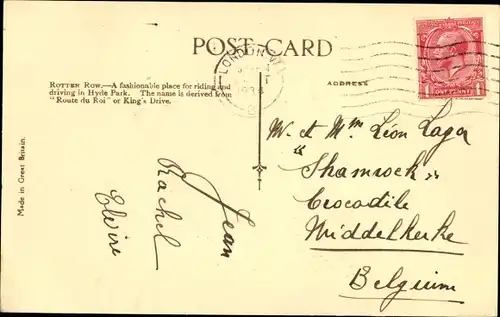 POST CARD
LONDON
ROTTEN ROW.—A fashionable place for riding and
driving in Hyde Park. The name is derived from
"Route du Roi" or King's Drive.
ADDRESS
ONE PENNY
Made in Great Britain.
Elvire
Rachel
Jean
M. et Mme Léon Lagar
"Shamrock"
Crocodile
Middelkerke
Belgium